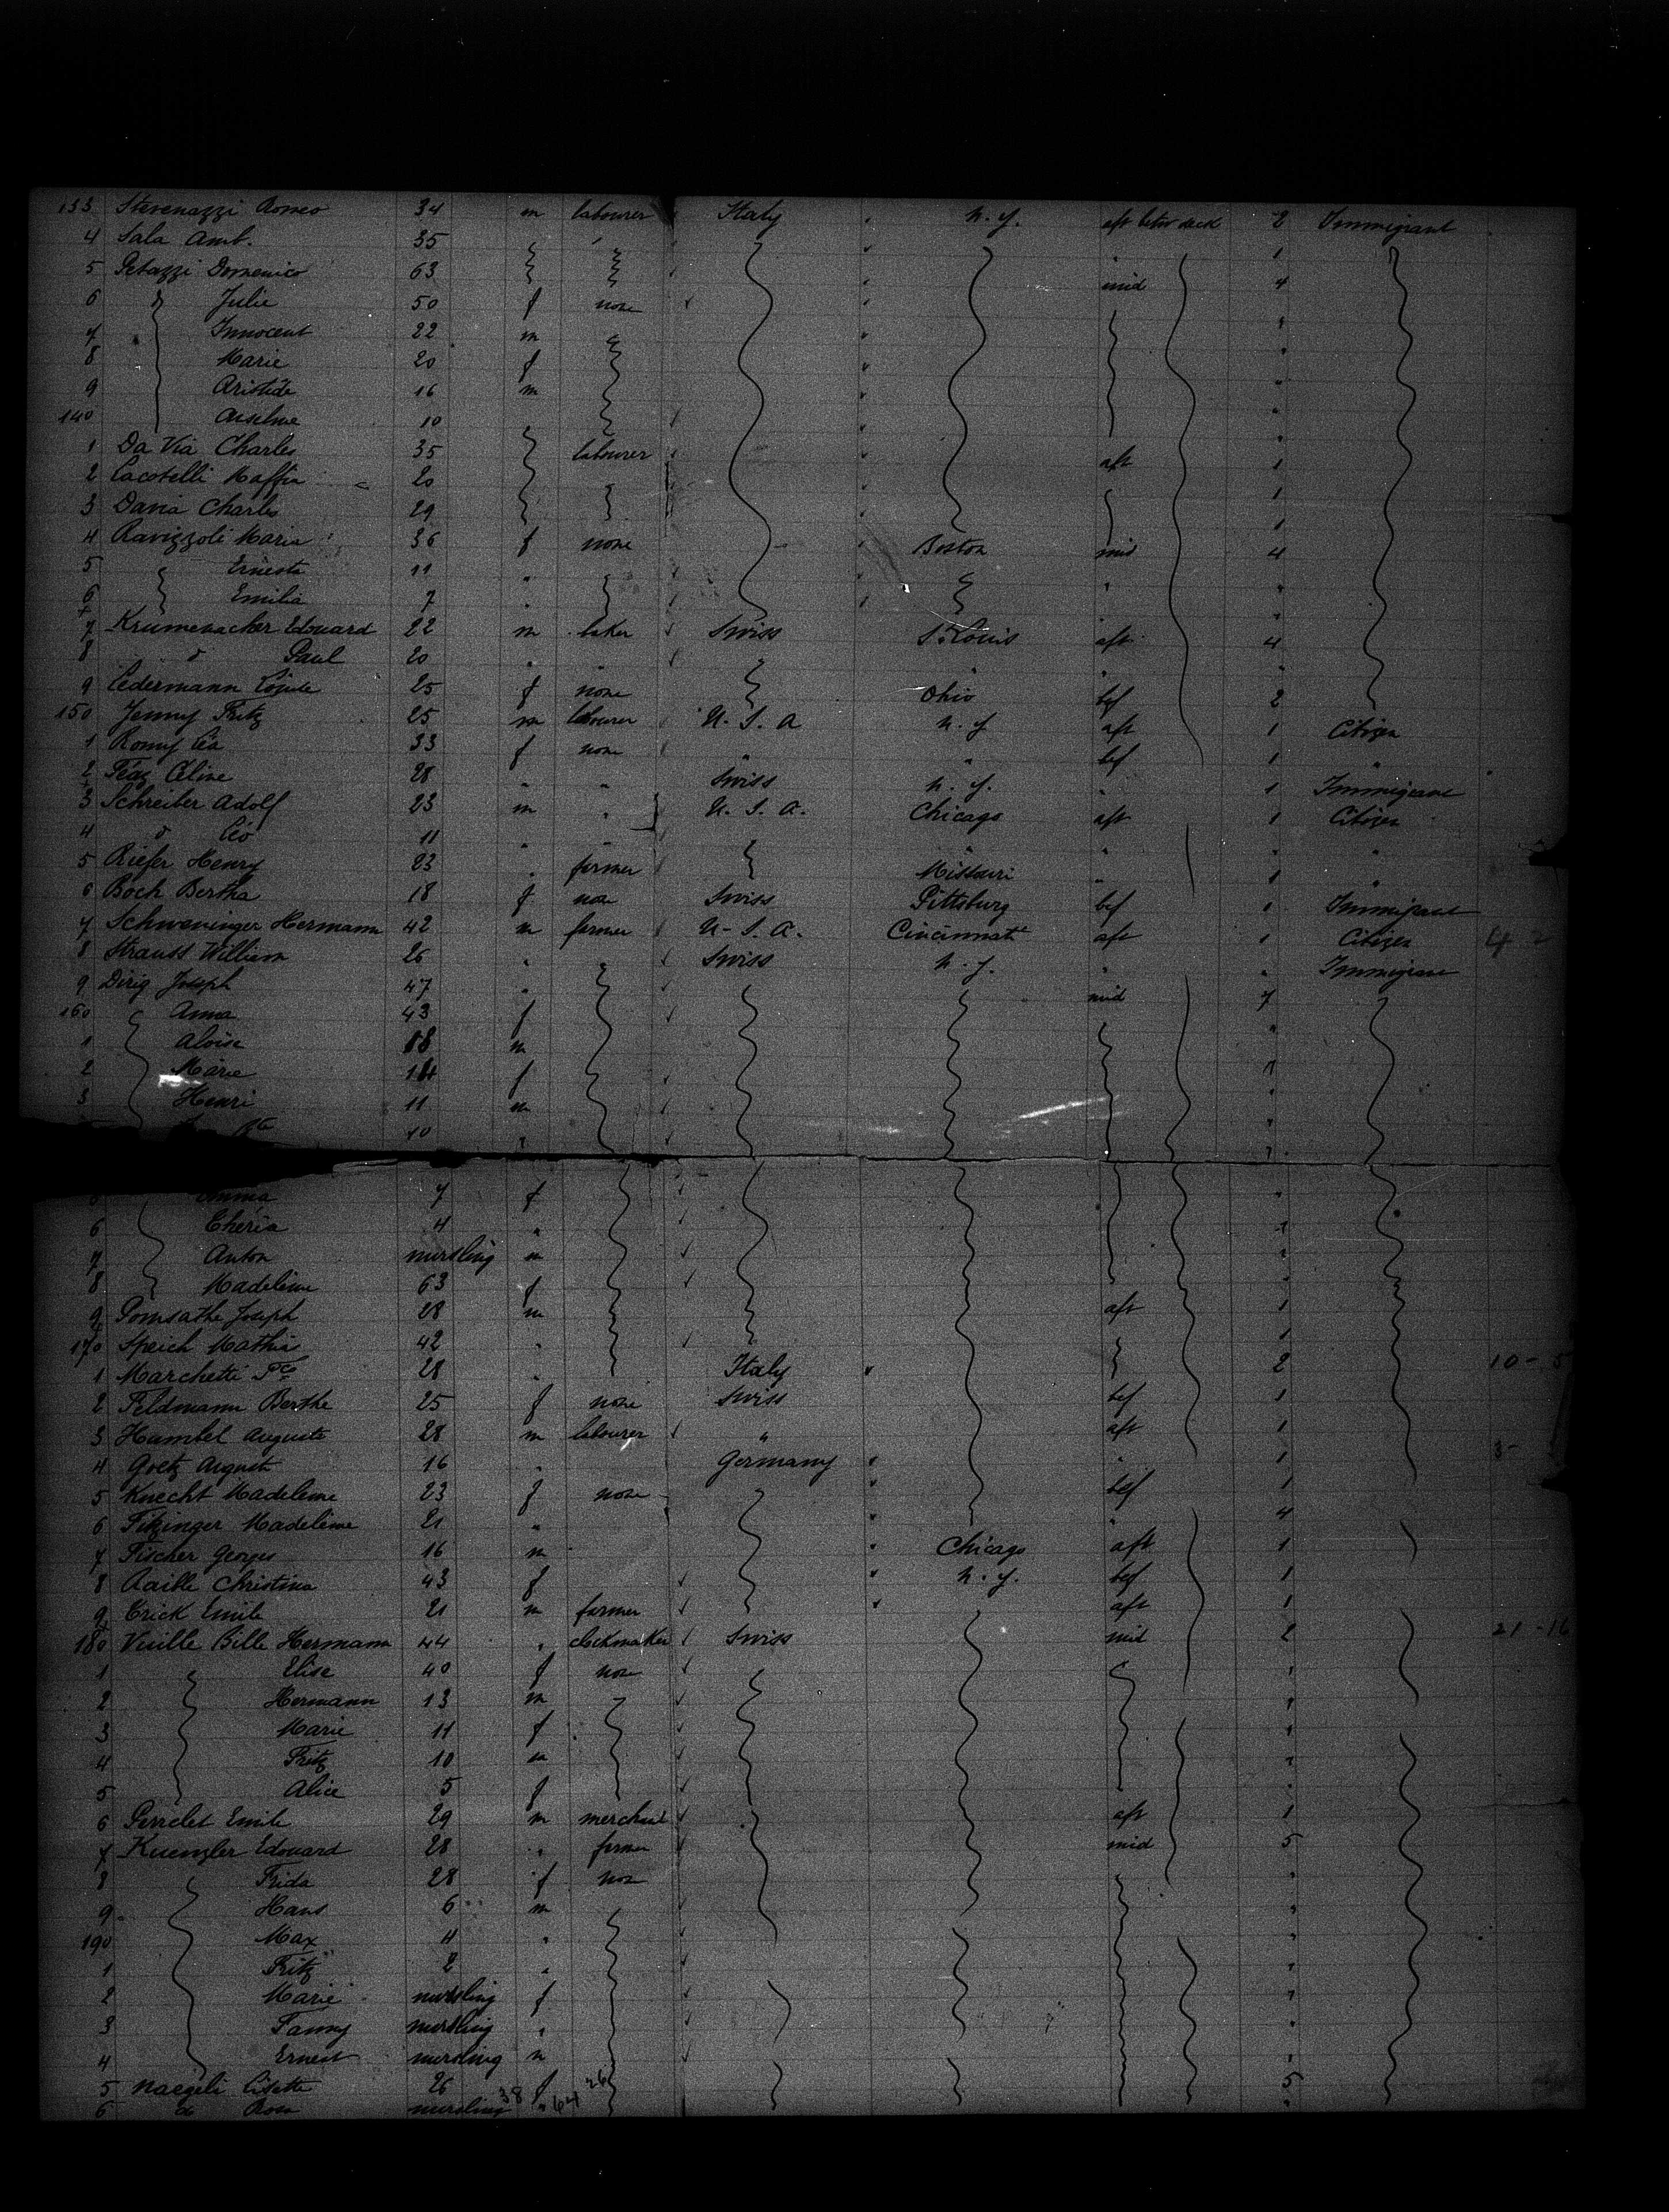 133 Stevenazzi Romeo 34 m labourer Italy " N. Y. aft betw deck 2 Immigrant
4 Sala Amb. 35 " 1
5 Petazzi Domenico 63 mid 4
6 Julie 50 f none "
7 Innocent 22 m "
8 Marie 20 f "
9 Aristide 16 m "
140 Anselme 10 "
1 Da Via Charles 35 labourer aft 1
2 Lacotelli Maffia 20 1
3 Davia Charles 29 1
4 Ravizzoli Maria 36 f none Boston mid 4
5 Ernesta 11 " "
6 Emilia 7 " "
7 Krumenacher Edouard 22 m baker Swiss St. Louis aft 4
8 d Paul 20 " " " "
9 Ledermann 25 f none Ohio bef 2
150 Jenny Fritz 25 m labourer U. S. A N. Y aft 1 Citizen
1 Romy Léa 33 f none " " bef 1 "
2 Féaz Céline 28 " " Swiss N. Y. " 1 Immigrant
3 Schreiber Adolf 23 m " U. S. A. Chicago aft 1 Citizen
4 d Léo 11 " " " " " "
5 Riefer Henry 23 " farmer Missouri " 1 "
6 Boch Bertha 18 f none Swiss Pittsburg bef 1 Immigrant
7 Schweninger Hermann 42 m farmer U. S. A. Cincinnati aft 1 Citizen
8 Strauss William 26 " Swiss N. Y. " " Immigrant
9 Dirig Joseph 47 " mid 7
160 Anna 43 f "
1 Aloise 18 m
2 Marie 14 f "
3 Henri 11 m "
10 " "
Emma 7 f "
6 4 " "
7 Anton nursling m "
8 Madeleine 63 f "
9 Pomsathe Joseph 28 m aft 1
170 Speich Mathis 42 " 1
1 Marchetti 28 " Italy " 2 10 - 5
2 Feldmann Berthe 25 f none Swiss bef 1
3 Humbel Auguste 28 m labourer " aft 1
4 Goetz August 16 " Germany " " 1 3
5 Knecht Madeleine 23 f none " bef 1
6 Fitzinger Madeleine 21 " " " 4
7 Fischer Georges 16 m " Chicago aft 1
8 Christina 43 f " N. Y. bef 1
9 Erick Emile 21 m farmer " aft 1
180 Vuille Bille Hermann 44 " clockmaker Swiss mid 21 - 16
1 Elise 40 f none "
2 Hermann 13 m "
3 Marie 11 f "
4 Fritz 10 m "
5 Alice 5 f "
6 Perrelet Emile 29 m merchant aft 1
7 Kuenzler Edouard 28 " farmer mid 5
8 Frida 28 f none "
9 Hans 6 m "
190 Max 4 " "
1 Fritz 2 " "
2 Marie nursling f "
3 Fanny nursling " "
4 Ernest nursling m "
5 Naegeli Lisette 26 f 5
6 do Rosa nursling " "
38 64 26